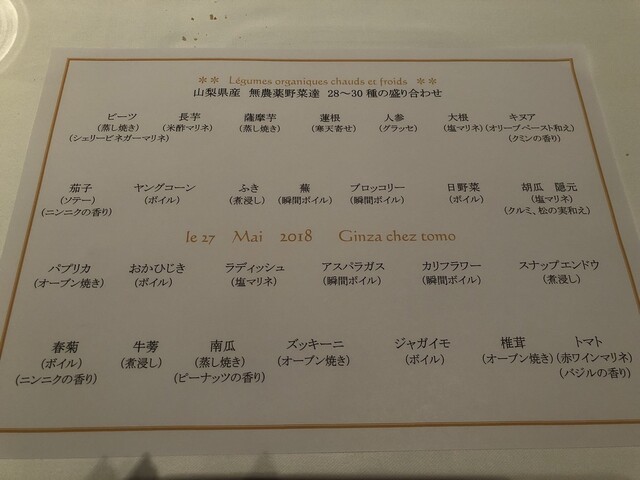 ** Légumes organiques chauds et froids **
山梨県産 無農薬野菜達 28～30種の盛り合わせ
ビーツ 長芋 薩摩芋 蓮根 人参 大根 キヌア
(蒸し焼き) (米酢マリネ) (蒸し焼き) (寒天寄せ) (グラッセ) (塩マリネ) (オリーブペースト和え)
(シェリービネガーマリネ) (クミンの香り)
茄子 ヤングコーン ふき 蕪 ブロッコリー 日野菜 胡瓜 隠元
(ソテー) (ボイル) (煮浸し) (瞬間ボイル) (瞬間ボイル) (ボイル) (塩マリネ)
(ニンニクの香り) (クルミ、松の実和え)
le 27 Mai 2018 Ginza chez tomo
パプリカ おかひじき ラディッシュ アスパラガス カリフラワー スナップエンドウ
(オーブン焼き) (ボイル) (塩マリネ) (瞬間ボイル) (瞬間ボイル) (煮浸し)
春菊 牛蒡 南瓜 ズッキーニ ジャガイモ 椎茸 トマト
(ボイル) (煮浸し) (蒸し焼き) (オーブン焼き) (ボイル) (オーブン焼き) (赤ワインマリネ)
(ニンニクの香り) (ピーナッツの香り) (バジルの香り)